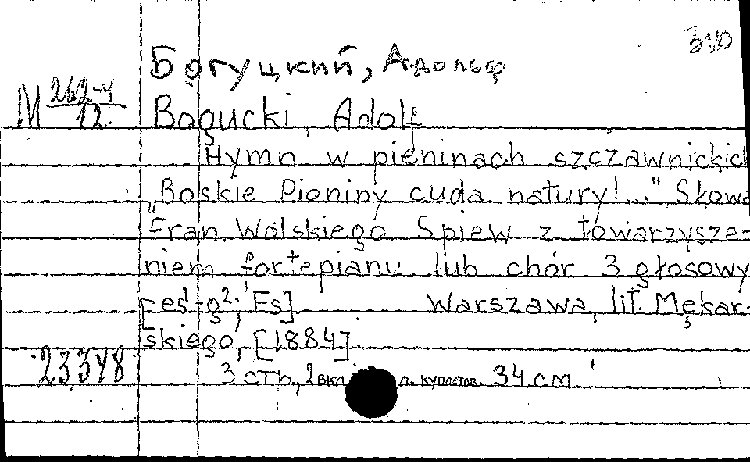 340
Богуцкий, Адольф
M 262-4/12
Bogucki, Adolf
Hymn w pieninach szczawnickich
"Boskie Pieniny cuda natury!..." Słowa
Fran. Walskiego. Spiew z towarzysze-
niem fortepianu lub chór 3 głosowy
[es¹-g²; Es] Warszawa, lit. Mękar-
skiego, [1884].
23348 3 стр., л. куплетов. 34 см.